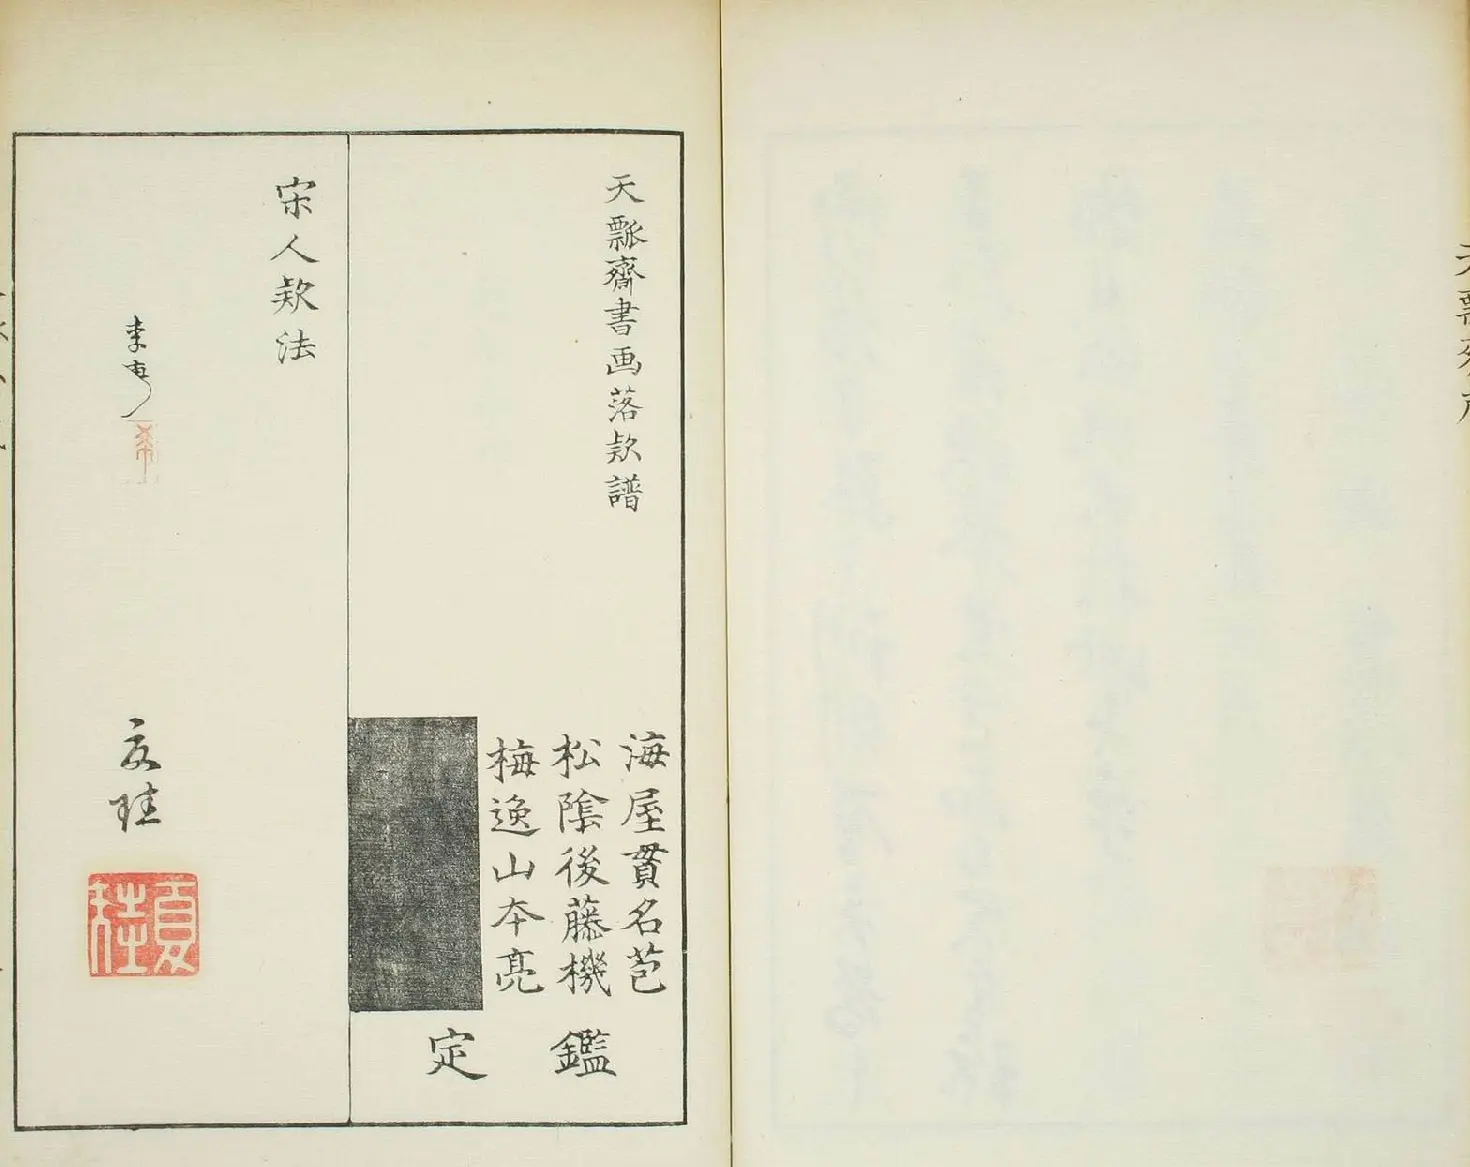 天瓢齋書画落款譜
海屋貫名苞
松陰後藤機
梅逸山本亮
鑑定
宋人款法
夏珪
夏珪